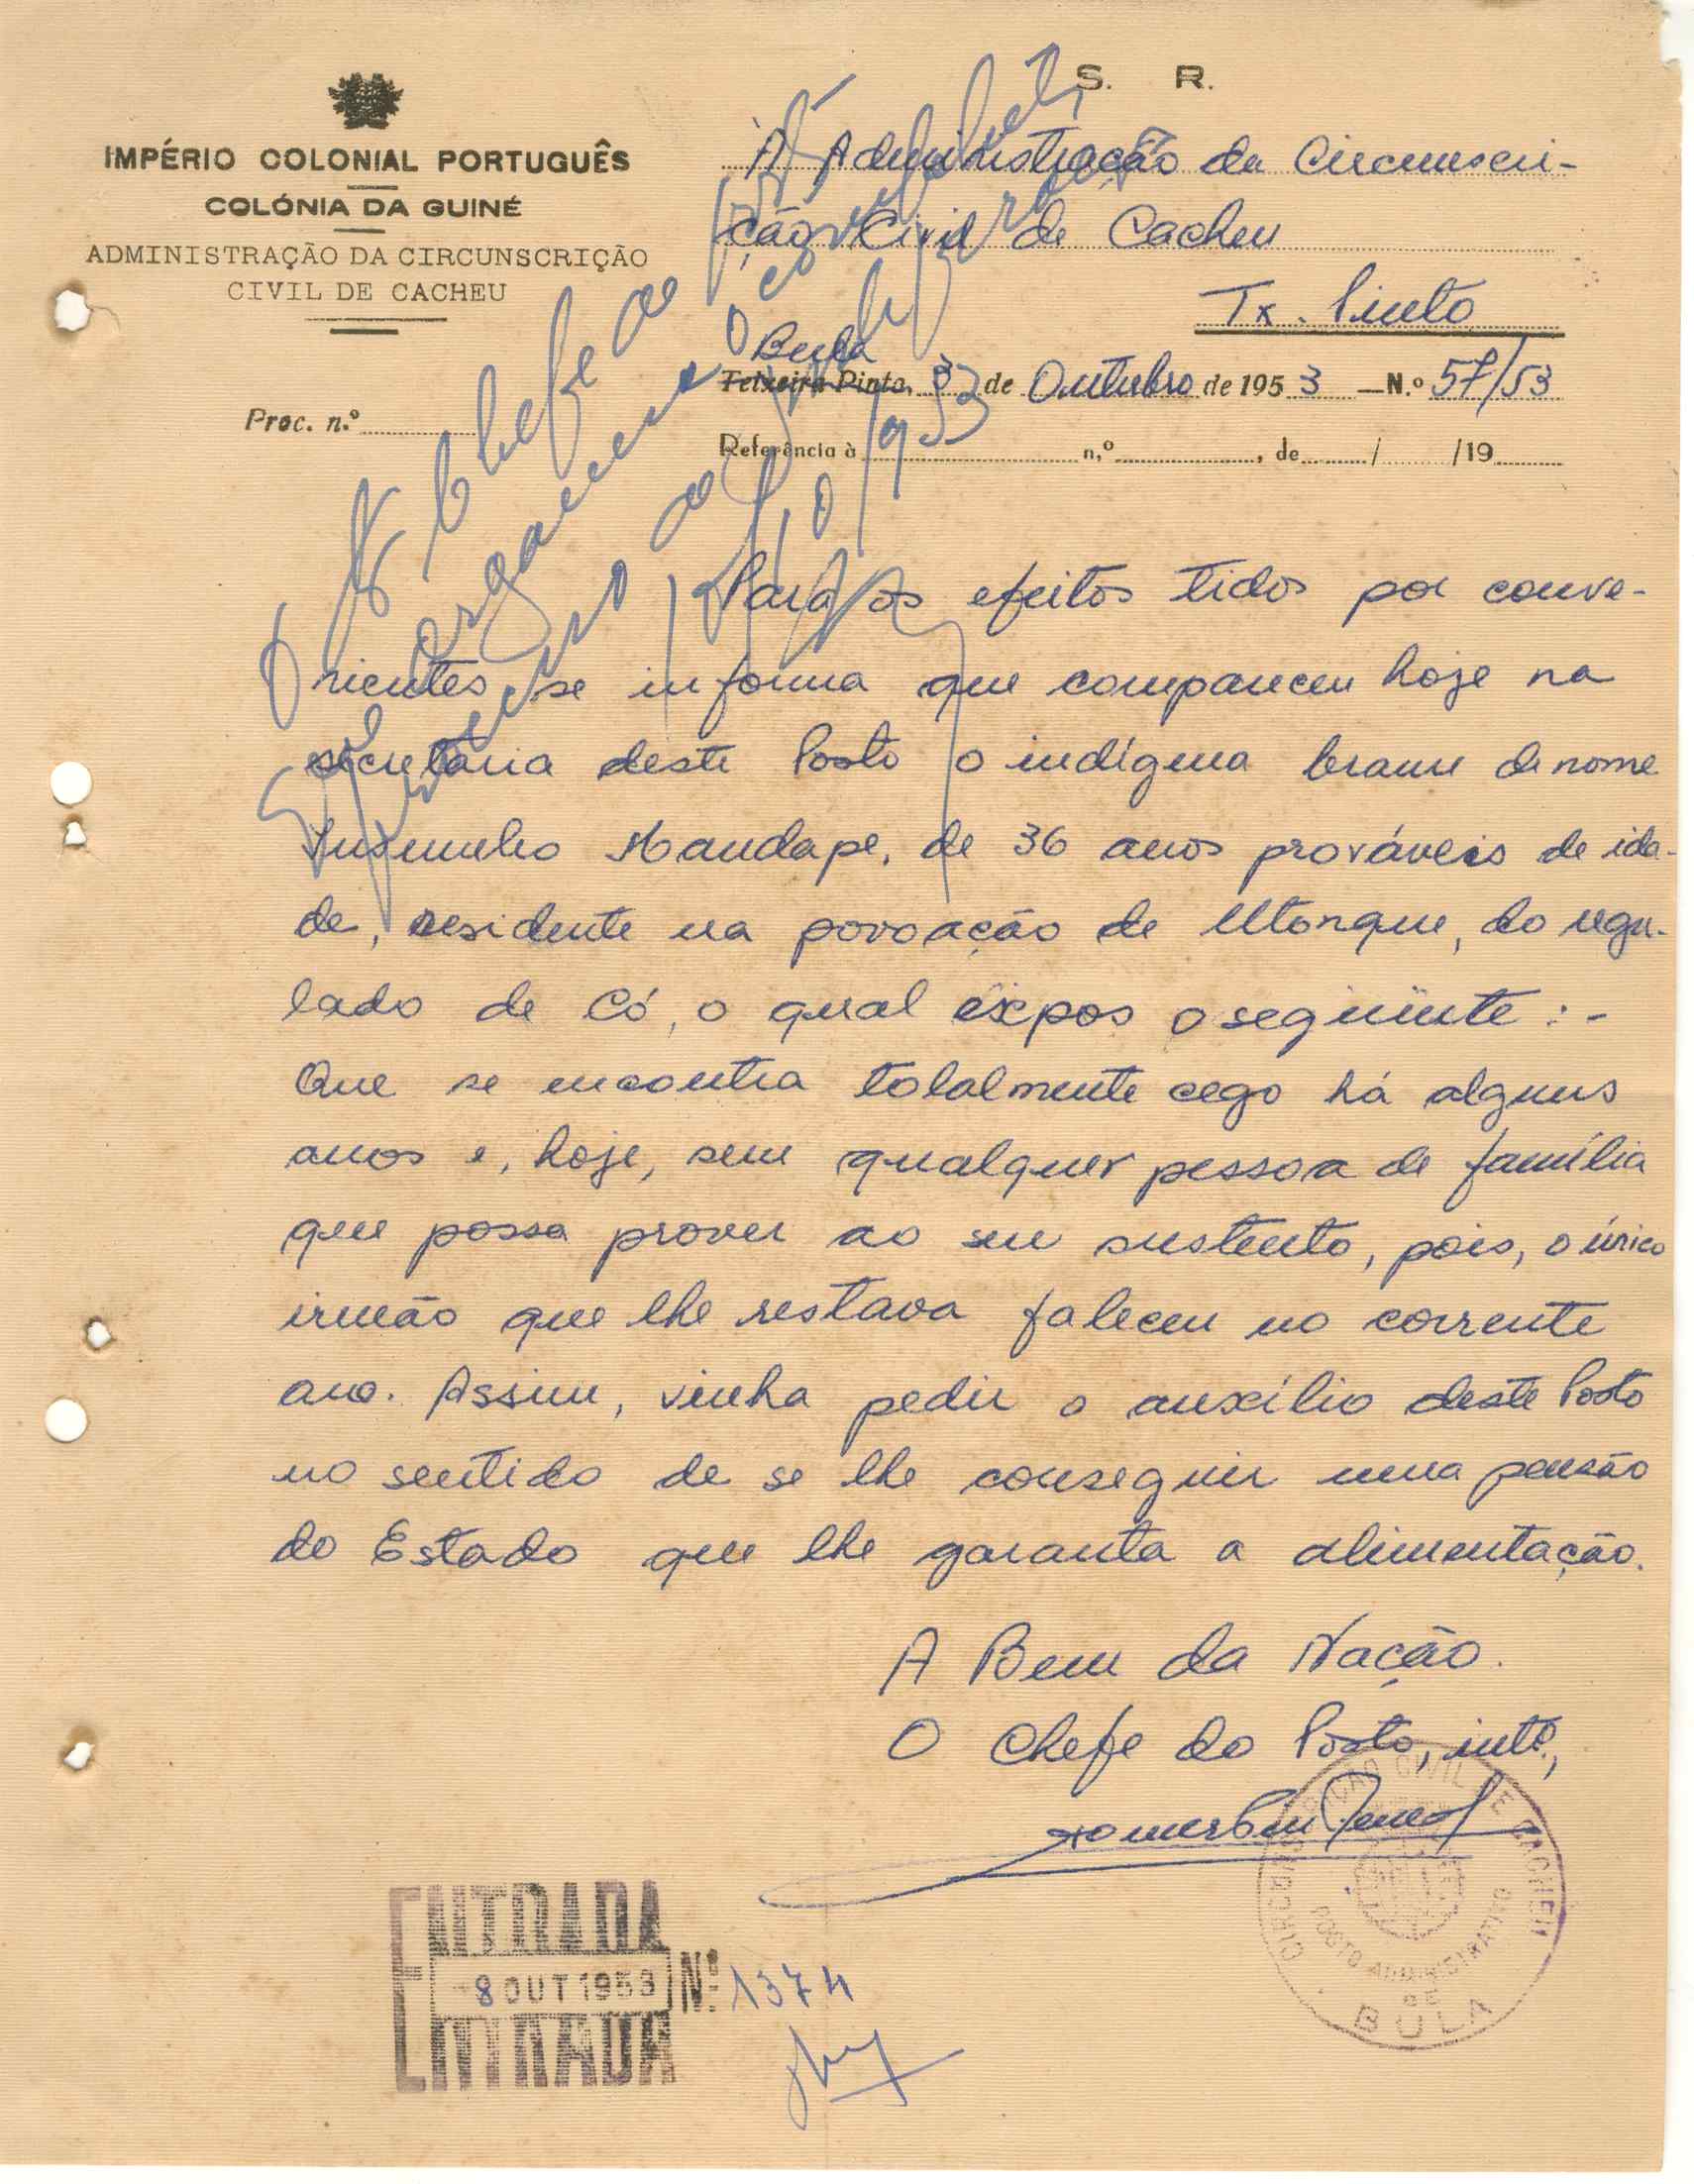 S. R.
IMPÉRIO COLONIAL PORTUGUÊS
COLÓNIA DA GUINÉ
ADMINISTRAÇÃO DA CIRCUNSCRIÇÃO
CIVIL DE CACHEU
À Administração da Circunscri-
ção Civil de Cacheu
Tx. Pinto
Bula
Teixeira Pinto, 3 de Outubro de 1953 — N.º 57/53
Proc. n.º
Referência à n.º , de / /19
Para os efeitos tidos por conve-
nientes se informa que compareceu hoje na
secretaria deste Posto o indígena brame de nome
Mandape, de 36 anos prováveis de ida-
de, residente na povoação de , do regu-
lado de Có, o qual expos o seguinte : -
Que se encontra totalmente cego há alguns
anos e, hoje, sem qualquer pessoa de família
que possa prover ao seu sustento, pois, o único
irmão que lhe restava faleceu no corrente
ano. Assim, vinha pedir o auxílio deste Posto
no sentido de se lhe conseguir uma pensão
do Estado que lhe garanta a alimentação.
A Bem da Nação.
O Chefe do Posto, intº,
CIRCUNSCRIÇÃO CIVIL DE CACHEU
POSTO ADMINISTRATIVO
DE
BULA
ENTRADA
-8 OUT 1953 Nº 1374
ENTRADA